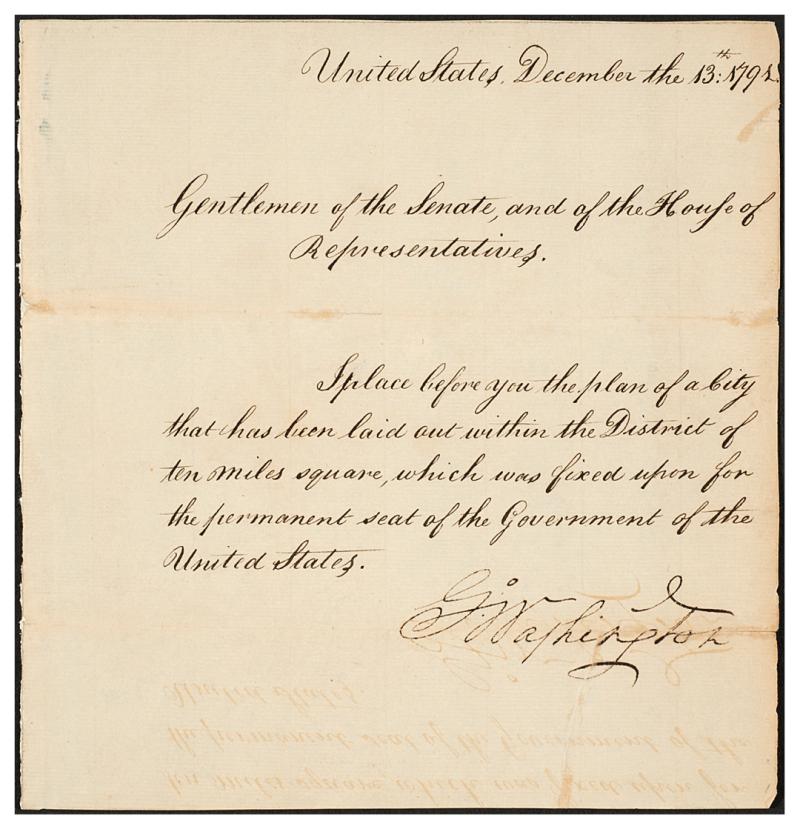 United States, December the 13:th 1791.
Gentlemen of the Senate, and of the House of
Representatives.
I place before you the plan of a City
that has been laid out within the District of
ten miles square, which was fixed upon for
the permanent seat of the Government of the
United States.
Go: Washington